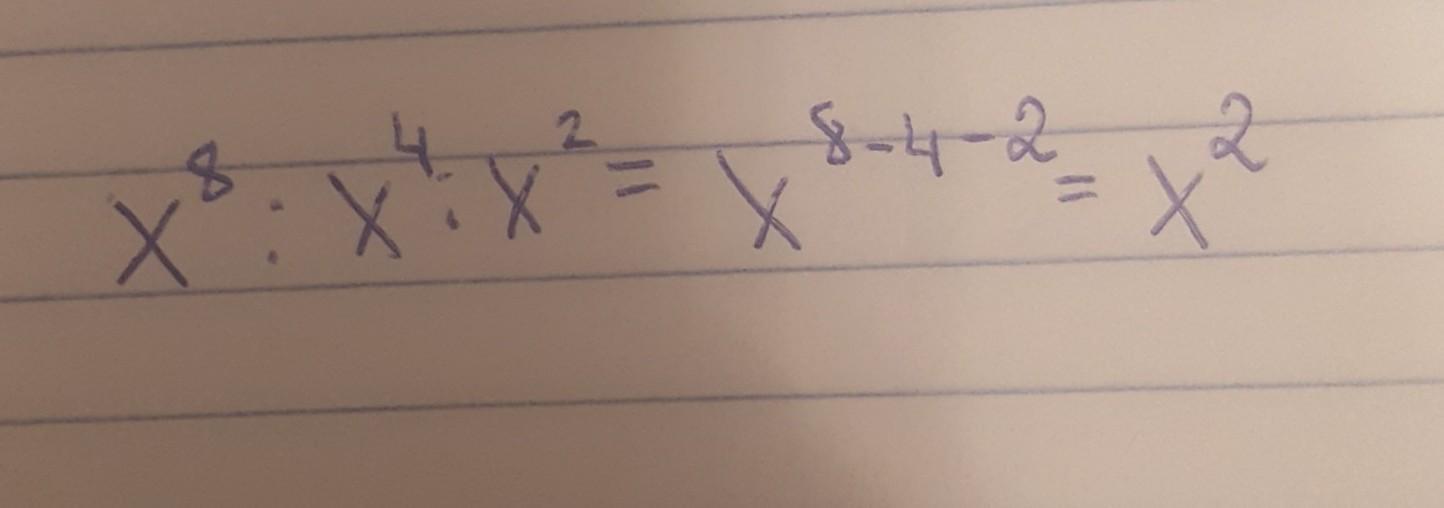 x⁸ : x⁴ : x² = x⁸⁻⁴⁻² = x²